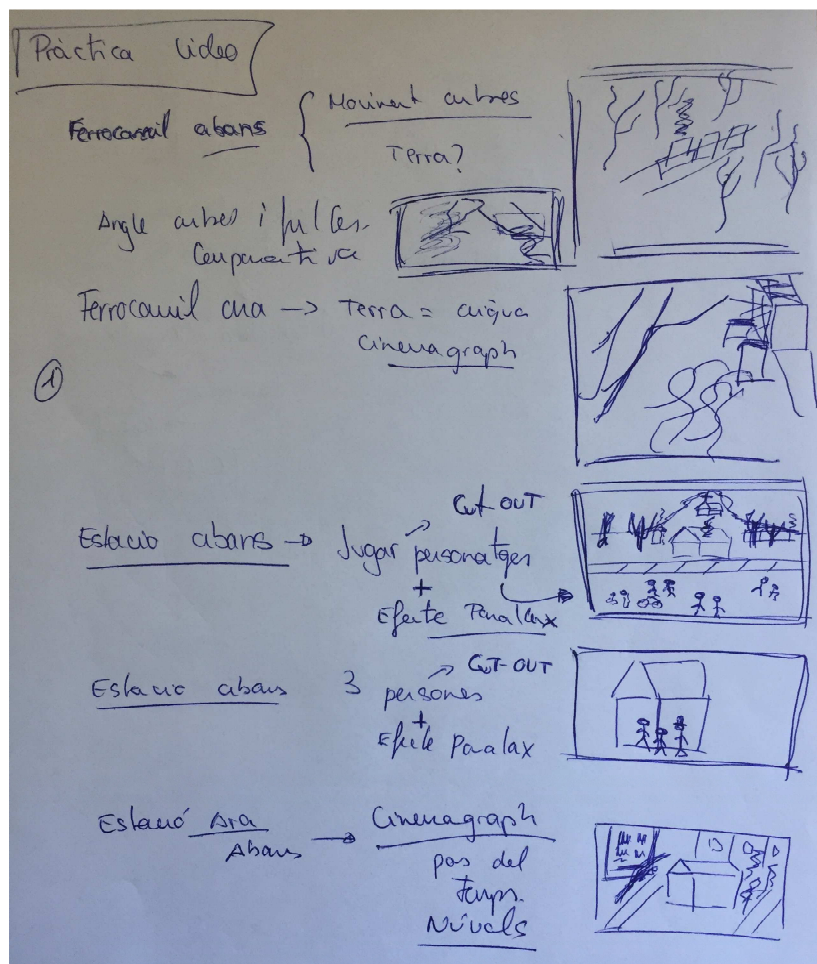 Pràctica Video
Ferrocarril abans
Moviment arbres
Terra?
Angle arbres i
Comparativa
Ferrocarril ara → Terra = aigua
Cinemagraph
1
Cut OUT
Estació abans → Jugar personatges
+
Efecte Paralax
CUT-OUT
Estació abans 3 persones
+
Efecte Paralax
Estació Ara → Cinemagraph
Abans
pas del
temps.
Núvols